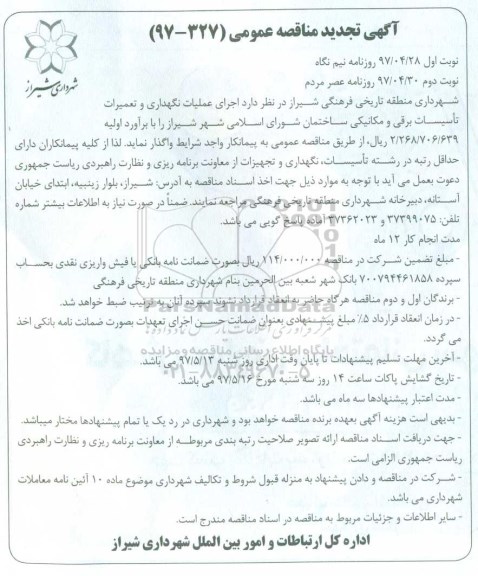 آگهی تجدید مناقصه عمومی (۳۲۷-۹۷)
شهرداری شیراز
نوبت اول ۹۷/۰۴/۲۸ روزنامه نیم نگاه
نوبت دوم ۹۷/۰۴/۳۰ روزنامه عصر مردم
شهرداری منطقه تاریخی فرهنگی شیراز در نظر دارد اجرای عملیات نگهداری و تعمیرات
تأسیسات برقی و مکانیکی ساختمان شورای اسلامی شهر شیراز را با برآورد اولیه
۲/۲۶۸/۷۰۶/۶۳۹ ریال، از طریق مناقصه عمومی به پیمانکار واجد شرایط واگذار نماید. لذا از کلیه پیمانکاران دارای
حداقل رتبه در رشته تأسیسات، نگهداری و تجهیزات از معاونت برنامه ریزی و نظارت راهبردی ریاست جمهوری
دعوت بعمل می آید با توجه به موارد ذیل جهت اخذ اسناد مناقصه به آدرس: شیراز، بلوار زینبیه، ابتدای خیابان
آستانه، دبیرخانه شهرداری منطقه تاریخی فرهنگی مراجعه نمایند. ضمناً در صورت نیاز به اطلاعات بیشتر شماره
تلفن: ۳۷۳۹۹۰۷۵ و ۳۷۳۶۲۰۲۳ آماده پاسخ گویی می باشد.
مدت انجام کار ۱۲ ماه
- مبلغ تضمین شرکت در مناقصه ۱۱۴/۰۰۰/۰۰۰ ریال بصورت ضمانت نامه بانکی یا فیش واریزی نقدی بحساب
سپرده ۷۰۰۷۹۴۴۶۱۸۵۸ بانک شهر شعبه بین الحرمین بنام شهرداری منطقه تاریخی فرهنگی
- برندگان اول و دوم مناقصه هرگاه حاضر به انعقاد قرارداد نشوند سپرده آنان به ترتیب ضبط خواهد شد.
- در زمان انعقاد قرارداد ۵٪ مبلغ پیشنهادی بعنوان ضمانت حسن اجرای تعهدات بصورت ضمانت نامه بانکی اخذ
می گردد.
- آخرین مهلت تسلیم پیشنهادات تا پایان وقت اداری روز شنبه ۹۷/۵/۱۳ می باشد.
- تاریخ گشایش پاکات ساعت ۱۴ روز سه شنبه مورخ ۹۷/۵/۱۶ می باشد.
- مدت اعتبار پیشنهادها سه ماه می باشد.
- بدیهی است هزینه آگهی بعهده برنده مناقصه خواهد بود و شهرداری در رد یک یا تمام پیشنهادها مختار میباشد.
- جهت دریافت اسناد مناقصه ارائه تصویر صلاحیت رتبه بندی مربوطه از معاونت برنامه ریزی و نظارت راهبردی
ریاست جمهوری الزامی است.
- شرکت در مناقصه و دادن پیشنهاد به منزله قبول شروط و تکالیف شهرداری موضوع ماده ۱۰ آئین نامه معاملات
شهرداری می باشد.
- سایر اطلاعات و جزئیات مربوط به مناقصه در اسناد مناقصه مندرج است.
اداره کل ارتباطات و امور بین الملل شهرداری شیراز